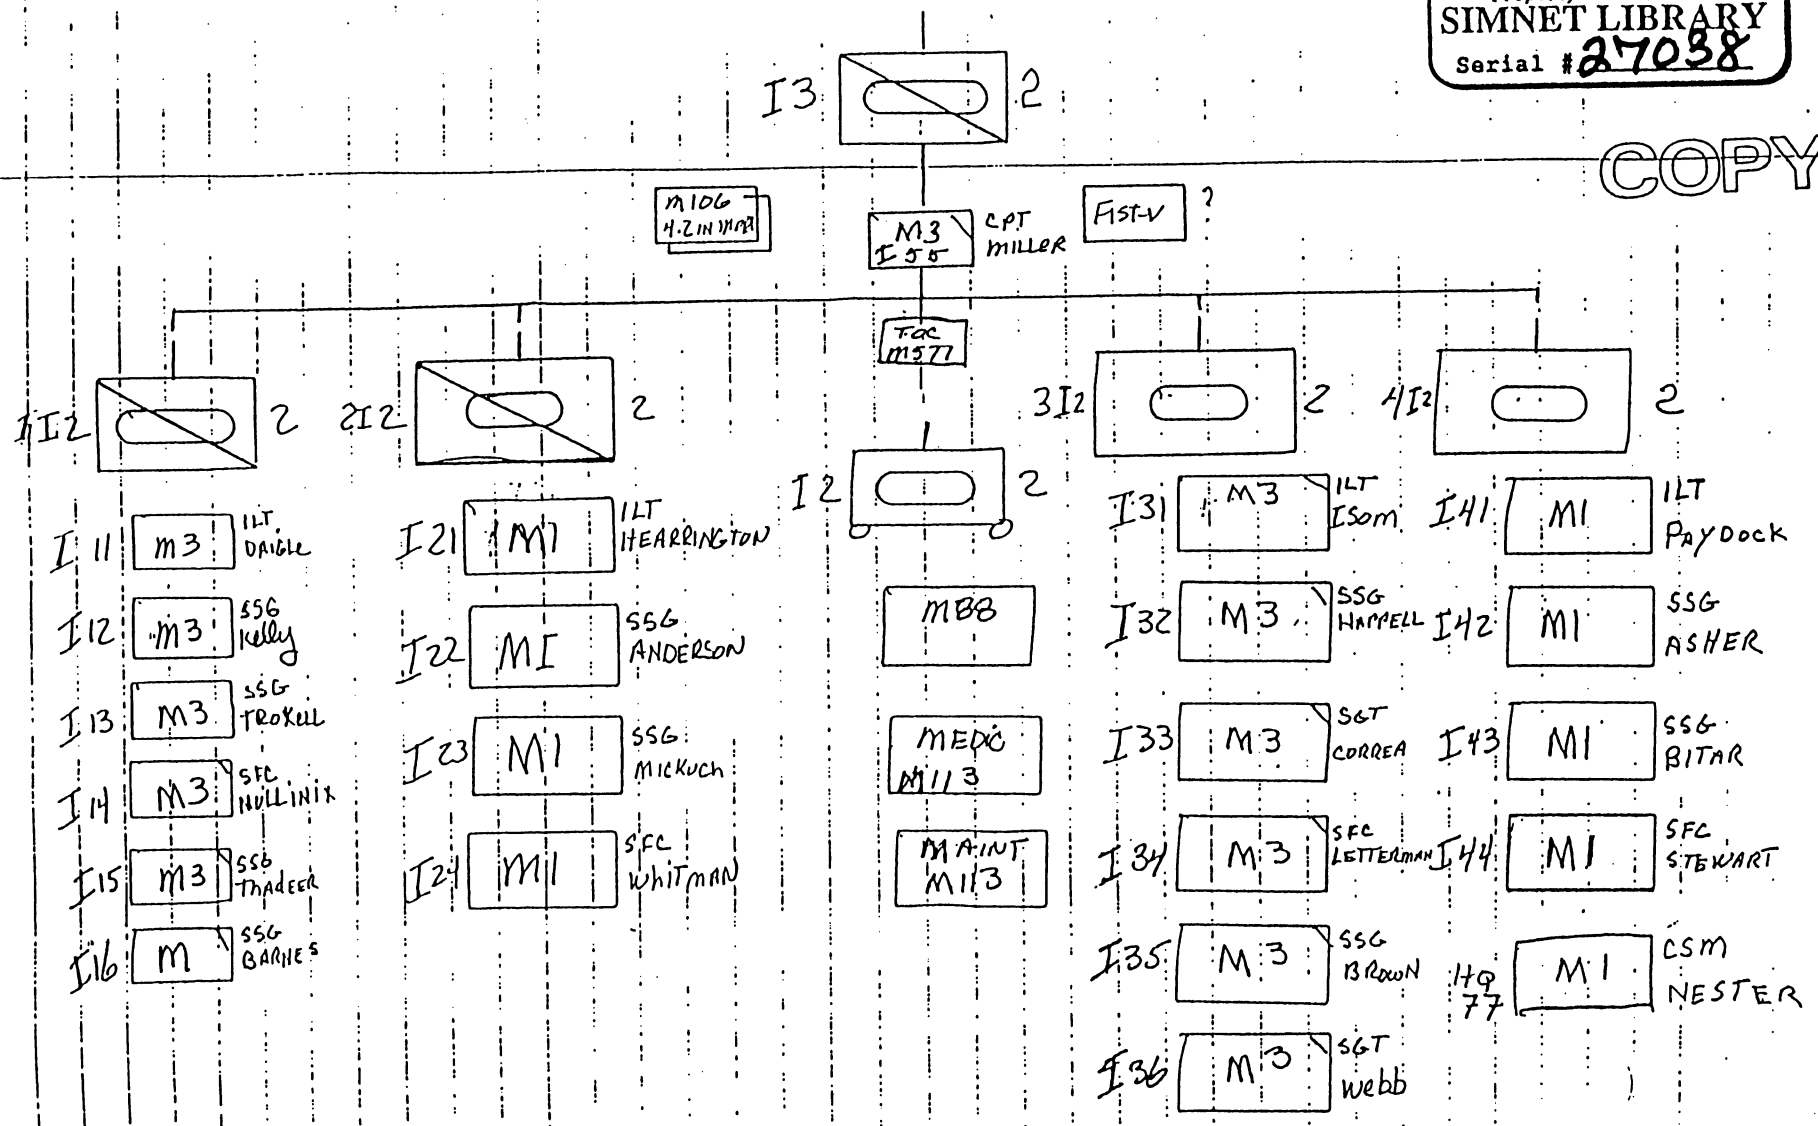 SIMNET LIBRARY
Serial # 27038
COPY
I3 2
M106
4.2 IN
M3
I 55
CPT
MILLER
FIST-V ?
TOC
M577
1I2 2
2I2 2
3I2 2
4I2 2
I2 2
I 11 M3 1LT
DAIGLE
I12 M3 SSG
Kelly
I13 M3 SSG
TROXELL
I14 M3 SFC
MULLINIX
I15 M3 SSG
THADEER
I16 M SSG
BARNES
I21 M1 1LT
HEARRINGTON
I22 M1 SSG
ANDERSON
I23 M1 SSG
Mickuch
I24 M1 SFC
WhitMAN
M88
MEDIC
M113
MAINT
M113
I31 M3 1LT
ISom
I32 M3 SSG
HAPPELL
I33 M3 SGT
CORREA
I34 M3 SFC
LETTERMAN
I35 M3 SSG
BROWN
I36 M3 SGT
Webb
I41 M1 1LT
PAYDOCK
I42 M1 SSG
ASHER
I43 M1 SSG
BITAR
I44 M1 SFC
STEWART
HQ
77 M1 CSM
NESTER